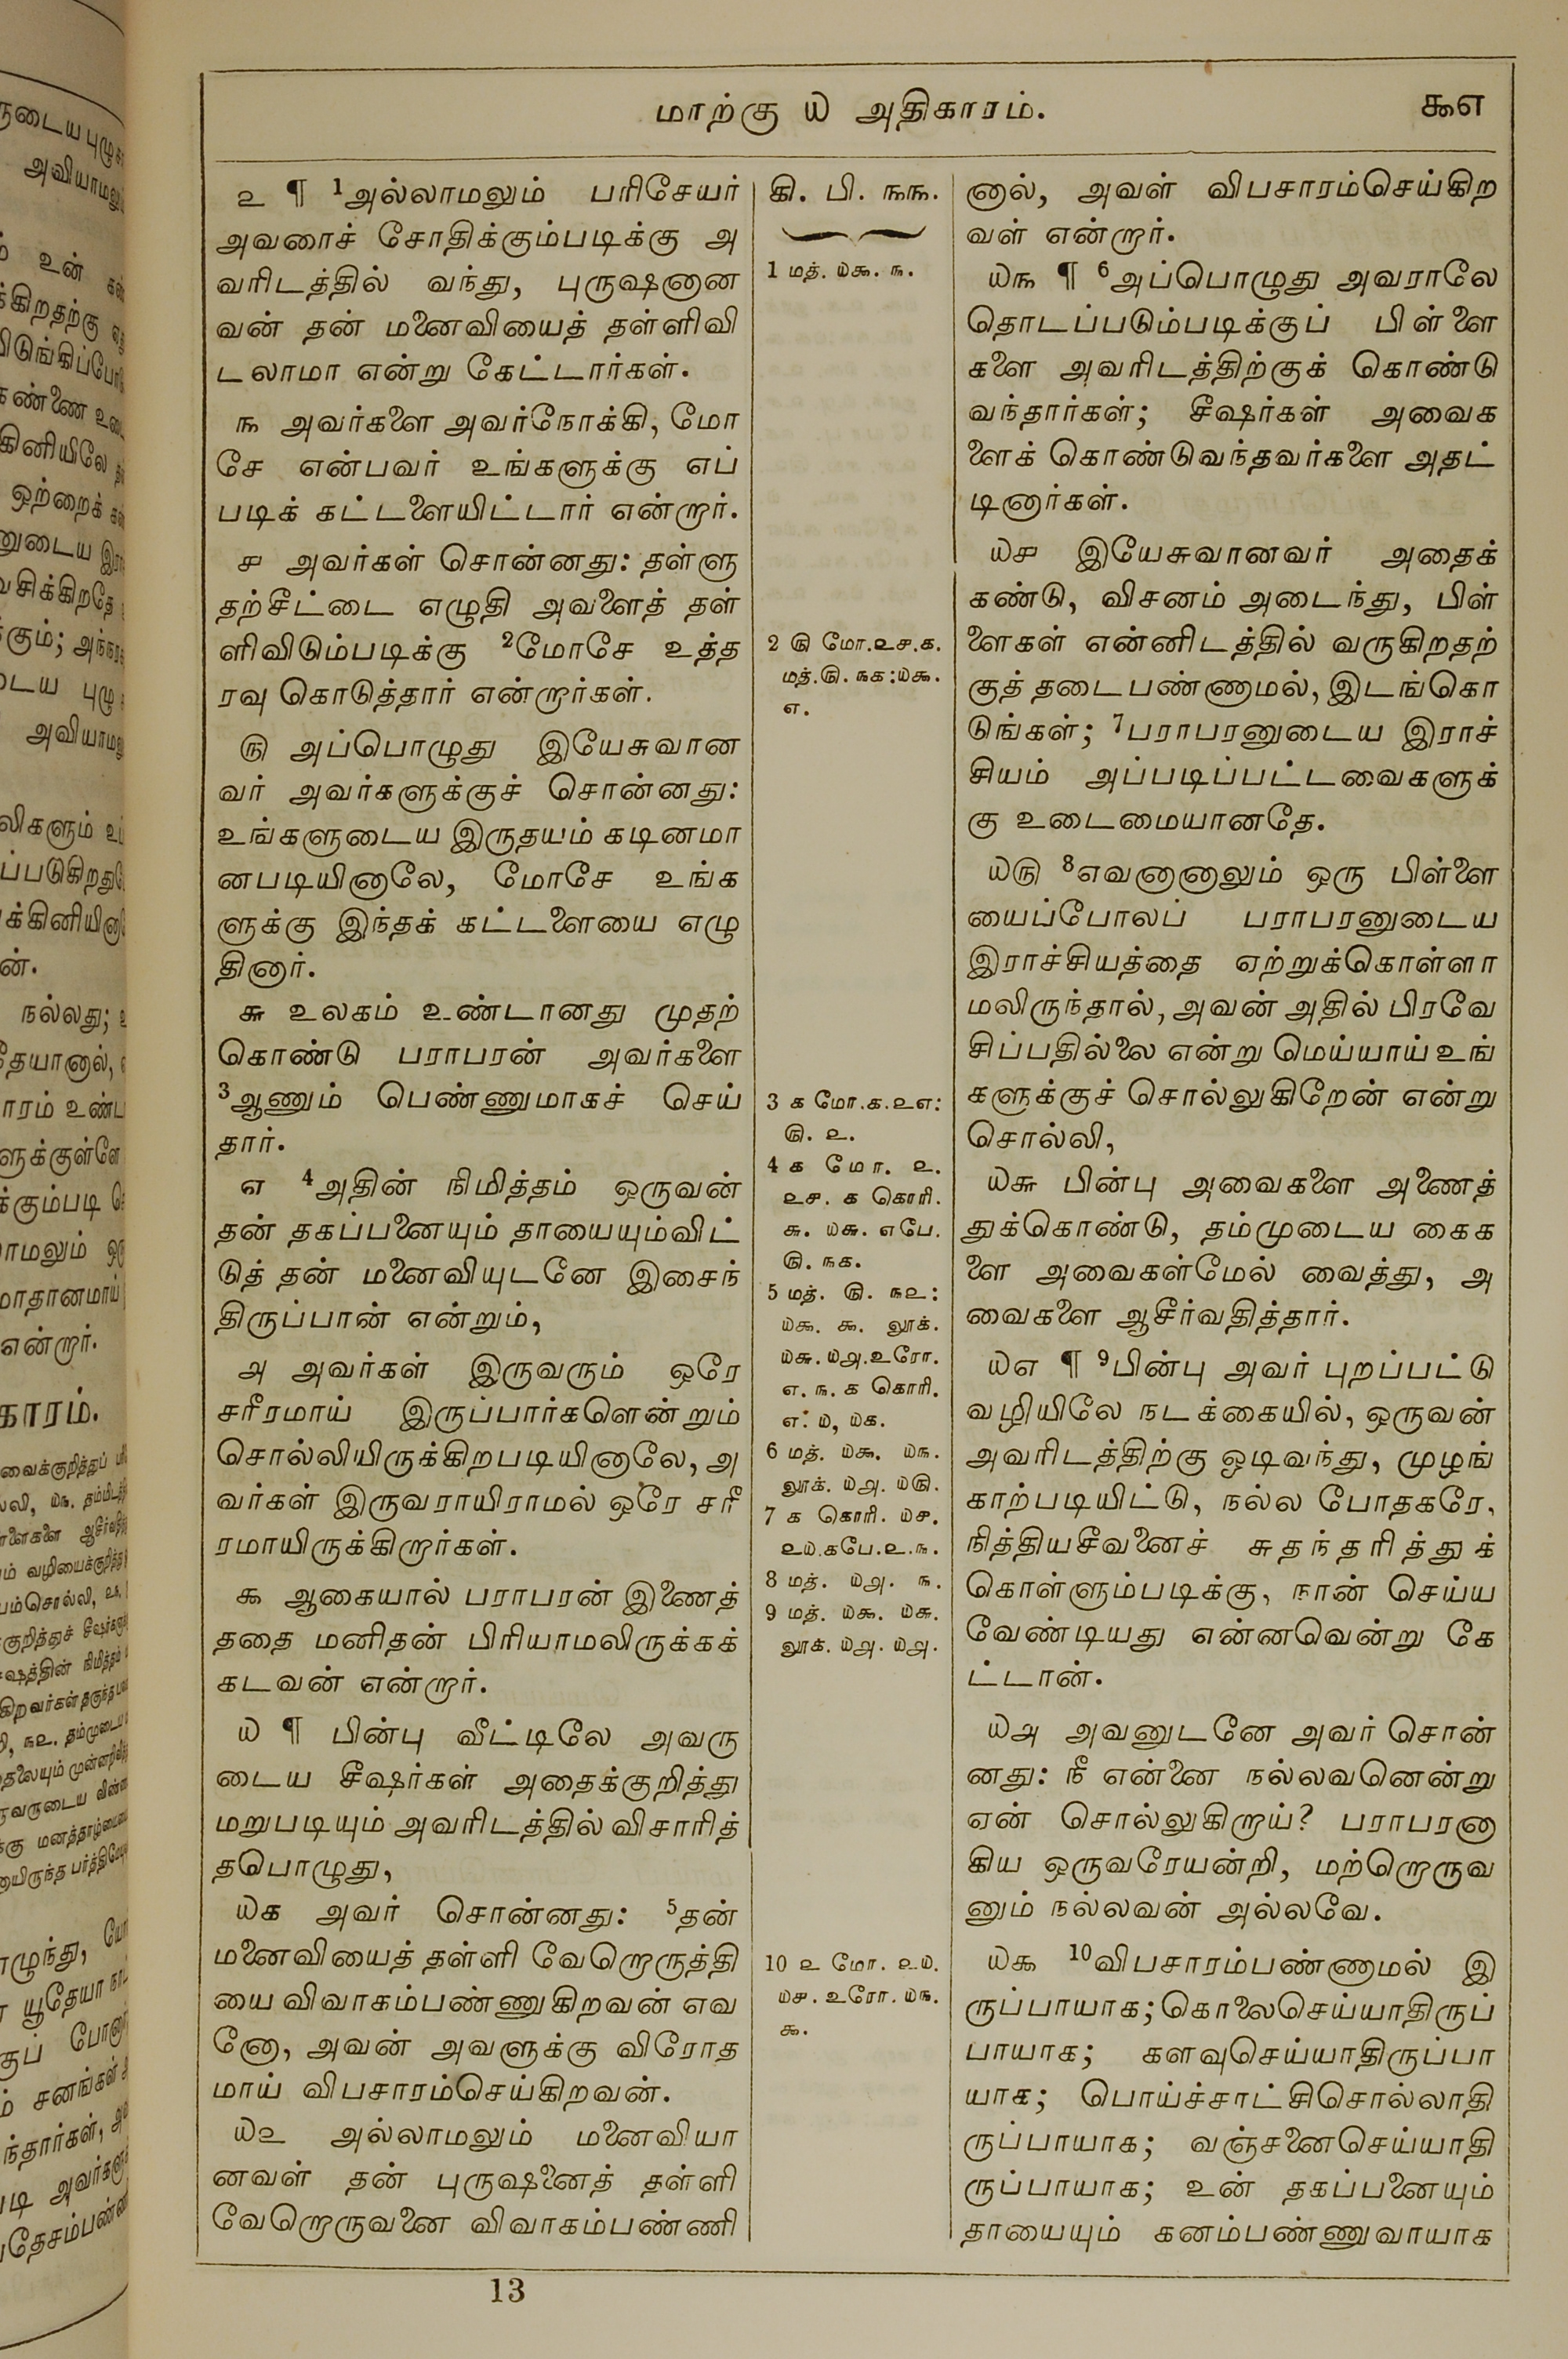 மாற்கு ௰ அதிகாரம்.
௯௭
௨ ¶ 1அல்லாமலும் பரிசேயர்
அவரைச் சோதிக்கும்படிக்கு அ
வரிடத்தில் வந்து, புருஷனான
வன் தன் மனைவியைத் தள்ளிவி
டலாமா என்று கேட்டார்கள்.
௩ அவர்களை அவர்நோக்கி, மோ
சே என்பவர் உங்களுக்கு எப்
படிக் கட்டளையிட்டார் என்றார்.
௪ அவர்கள் சொன்னது: தள்ளு
தற்சீட்டை எழுதி அவளைத் தள்
ளிவிடும்படிக்கு 2மோசே உத்த
ரவு கொடுத்தார் என்றார்கள்.
௫ அப்பொழுது இயேசுவான
வர் அவர்களுக்குச் சொன்னது:
உங்களுடைய இருதயம் கடினமா
னபடியினாலே, மோசே உங்க
ளுக்கு இந்தக் கட்டளையை எழு
தினார்.
௬ உலகம் உண்டானது முதற்
கொண்டு பராபரன் அவர்களை
3ஆணும் பெண்ணுமாகச் செய்
தார்.
௭ 4அதின் நிமித்தம் ஒருவன்
தன் தகப்பனையும் தாயையும்விட்
டுத் தன் மனைவியுடனே இசைந்
திருப்பான் என்றும்,
௮ அவர்கள் இருவரும் ஒரே
சரீரமாய் இருப்பார்களென்றும்
சொல்லியிருக்கிறபடியினாலே, அ
வர்கள் இருவராயிராமல் ஒரே சரீ
ரமாயிருக்கிறார்கள்.
௯ ஆகையால் பராபரன் இணைத்
ததை மனிதன் பிரியாமலிருக்கக்
கடவன் என்றார்.
௰ ¶ பின்பு வீட்டிலே அவரு
டைய சீஷர்கள் அதைக்குறித்து
மறுபடியும் அவரிடத்தில் விசாரித்
தபொழுது,
௰௧ அவர் சொன்னது: 5தன்
மனைவியைத் தள்ளி வேறொருத்தி
யை விவாகம்பண்ணுகிறவன் எவ
னோ, அவன் அவளுக்கு விரோத
மாய் விபசாரம்செய்கிறவன்.
௰௨ அல்லாமலும் மனைவியா
னவள் தன் புருஷனைத் தள்ளி
வேறொருவனை விவாகம்பண்ணி
கி. பி. ௩௩.
1 மத். ௰௯. ௩.
2 ௫ மோ.௨௪.௧.
மத்.௫. ௩௧:௰௯.
௭.
3 ௧ மோ.௧.௨௭:
௫. ௨.
4 ௧ மோ. ௨.
௨௪. ௧ கொரி.
௬. ௰௬. எபே.
௫. ௩௧.
5 மத். ௫. ௩௨:
௰௯. ௯. லூக்.
௰௬.௰௮.உரோ.
௭. ௩. ௧ கொரி.
௭: ௰, ௰௧.
6 மத். ௰௯. ௰௩.
லூக். ௰௮. ௰௫.
7 ௧ கொரி. ௰௪.
௨௰.௧பே.௨.௩.
8 மத். ௰௮. ௩.
9 மத். ௰௯. ௰௬.
லூக். ௰௮. ௰௮.
10 ௨ மோ. ௨௰.
௰௪. உரோ. ௰௩.
௯.
னால், அவள் விபசாரம்செய்கிற
வள் என்றார்.
௰௩ ¶ 6அப்பொழுது அவராலே
தொடப்படும்படிக்குப் பிள்ளை
களை அவரிடத்திற்குக் கொண்டு
வந்தார்கள்; சீஷர்கள் அவைக
ளைக் கொண்டுவந்தவர்களை அதட்
டினார்கள்.
௰௪ இயேசுவானவர் அதைக்
கண்டு, விசனம் அடைந்து, பிள்
ளைகள் என்னிடத்தில் வருகிறதற்
குத் தடைபண்ணாமல், இடங்கொ
டுங்கள்; 7பராபரனுடைய இராச்
சியம் அப்படிப்பட்டவைகளுக்
கு உடைமையானதே.
௰௫ 8எவனானாலும் ஒரு பிள்ளை
யைப்போலப் பராபரனுடைய
இராச்சியத்தை ஏற்றுக்கொள்ளா
மலிருந்தால், அவன் அதில் பிரவே
சிப்பதில்லை என்று மெய்யாய் உங்
களுக்குச் சொல்லுகிறேன் என்று
சொல்லி,
௰௬ பின்பு அவைகளை அணைத்
துக்கொண்டு, தம்முடைய கைக
ளை அவைகள்மேல் வைத்து, அ
வைகளை ஆசீர்வதித்தார்.
௰௭ ¶ 9பின்பு அவர் புறப்பட்டு
வழியிலே நடக்கையில், ஒருவன்
அவரிடத்திற்கு ஓடிவந்து, முழங்
காற்படியிட்டு, நல்ல போதகரே,
நித்தியசீவனைச் சுதந்தரித்துக்
கொள்ளும்படிக்கு, நான் செய்ய
வேண்டியது என்னவென்று கே
ட்டான்.
௰௮ அவனுடனே அவர் சொன்
னது: நீ என்னை நல்லவனென்று
ஏன் சொல்லுகிறாய்? பராபரனா
கிய ஒருவரேயன்றி, மற்றொருவ
னும் நல்லவன் அல்லவே.
௰௯ 10விபசாரம்பண்ணாமல் இ
ருப்பாயாக; கொலைசெய்யாதிருப்
பாயாக; களவுசெய்யாதிருப்பா
யாக; பொய்ச்சாட்சிசொல்லாதி
ருப்பாயாக; வஞ்சனைசெய்யாதி
ருப்பாயாக; உன் தகப்பனையும்
தாயையும் கனம்பண்ணுவாயாக
13